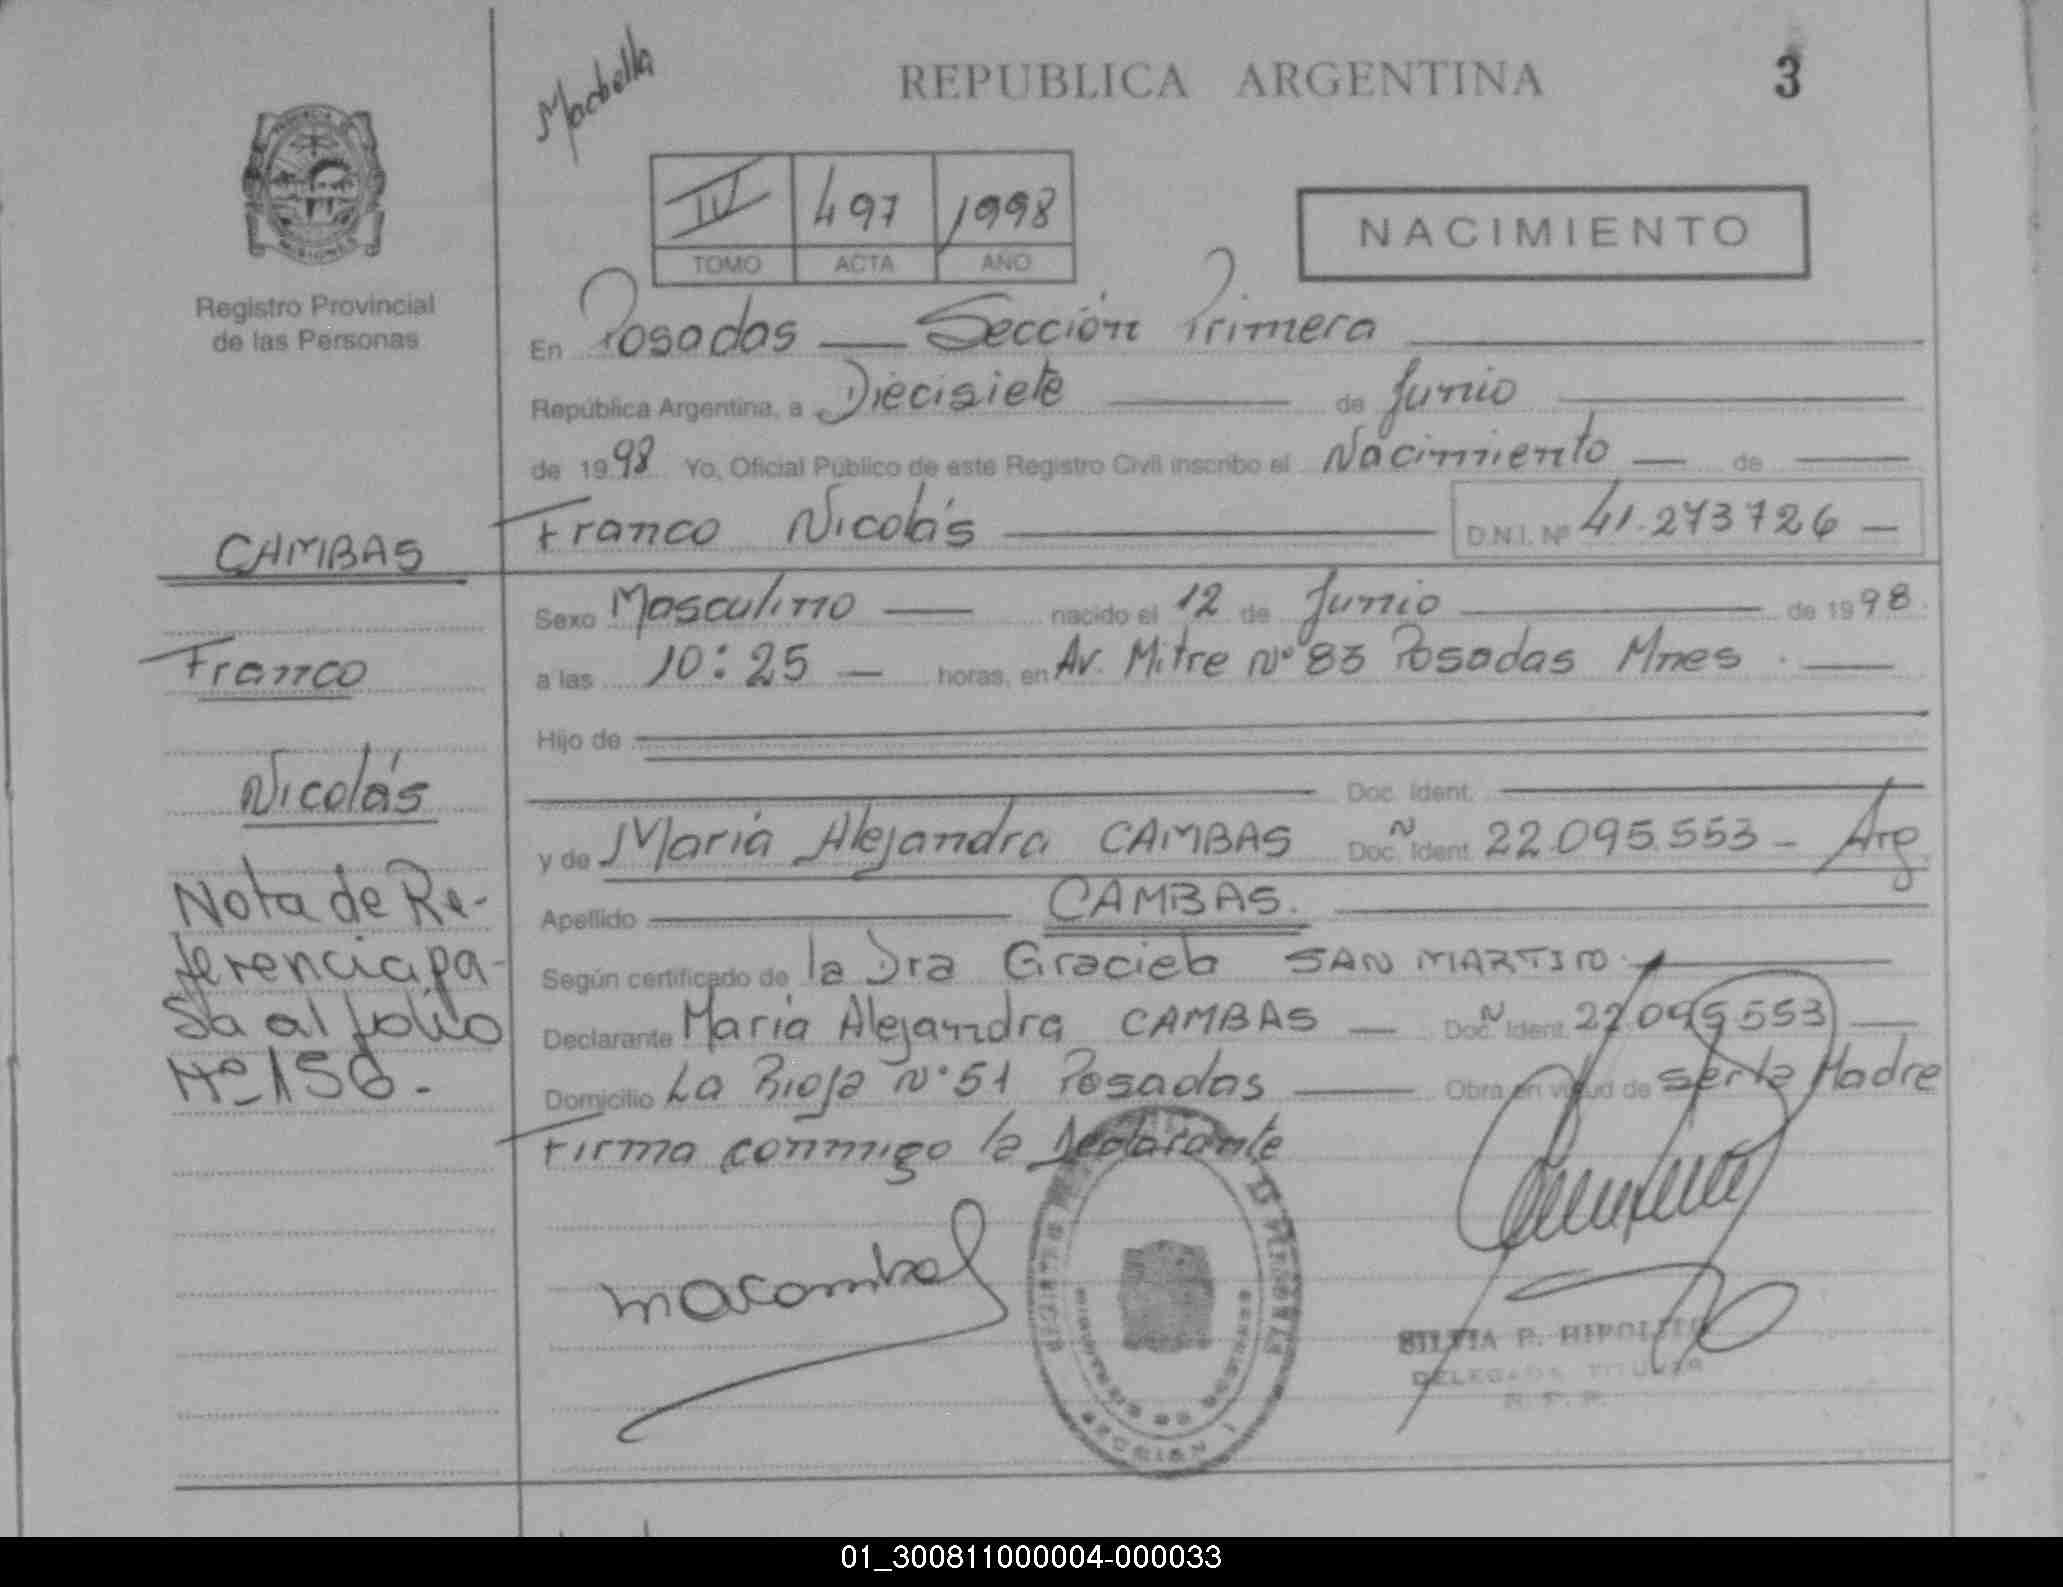 Macbella
REPUBLICA ARGENTINA
3
IV 497 1998
TOMO ACTA AÑO
NACIMIENTO
Registro Provincial
de las Personas
En Posadas — Sección Primera
República Argentina, a Diecisiete de Junio
de 1998 Yo, Oficial Público de este Registro Civil inscribo el Nacimiento — de
Franco Nicolás D.N.I. Nº 41.273726 —
CAMBAS
Franco
Nicolás
Nota de Re-
ferencia pa-
sa al folio
Nº 156.-
Sexo Masculino — nacido el 12 de Junio de 1998.
a las 10:25 — horas, en Av. Mitre Nº 83 Posadas Mnes.
Hijo de
Doc. Ident.
y de María Alejandra CAMBAS Doc. Nº Ident. 22.095.553 - Arg
Apellido CAMBAS.
Según certificado de la Dra Graciela SAN MARTIN.
Declarante María Alejandra CAMBAS — Doc. Nº Ident. 22.095553 —
Domicilio La Rioja Nº 51 Posadas — Obra en virtud de ser la Madre
Firma conmigo la Declarante
macambas
SILVIA P. HIPOLITO
DELEGADA TITULAR
R. P. P.
SECCION 1
01_300811000004-000033